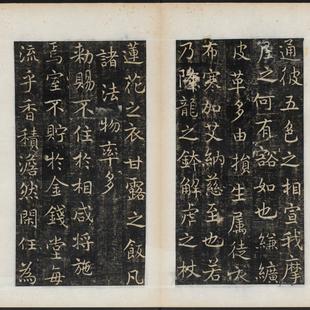 通彼五色之相宣我摩
尼之何有豁如也縑纊
皮革多由損生属徒衣
布寒加艾納慈至也若
乃降龍之鉢解虎之杖
蓮花之衣甘露之飯凡
諸法物率多
勑賜不住於相咸將施
焉室不貯於金錢堂每
流乎香積澹然閑任為